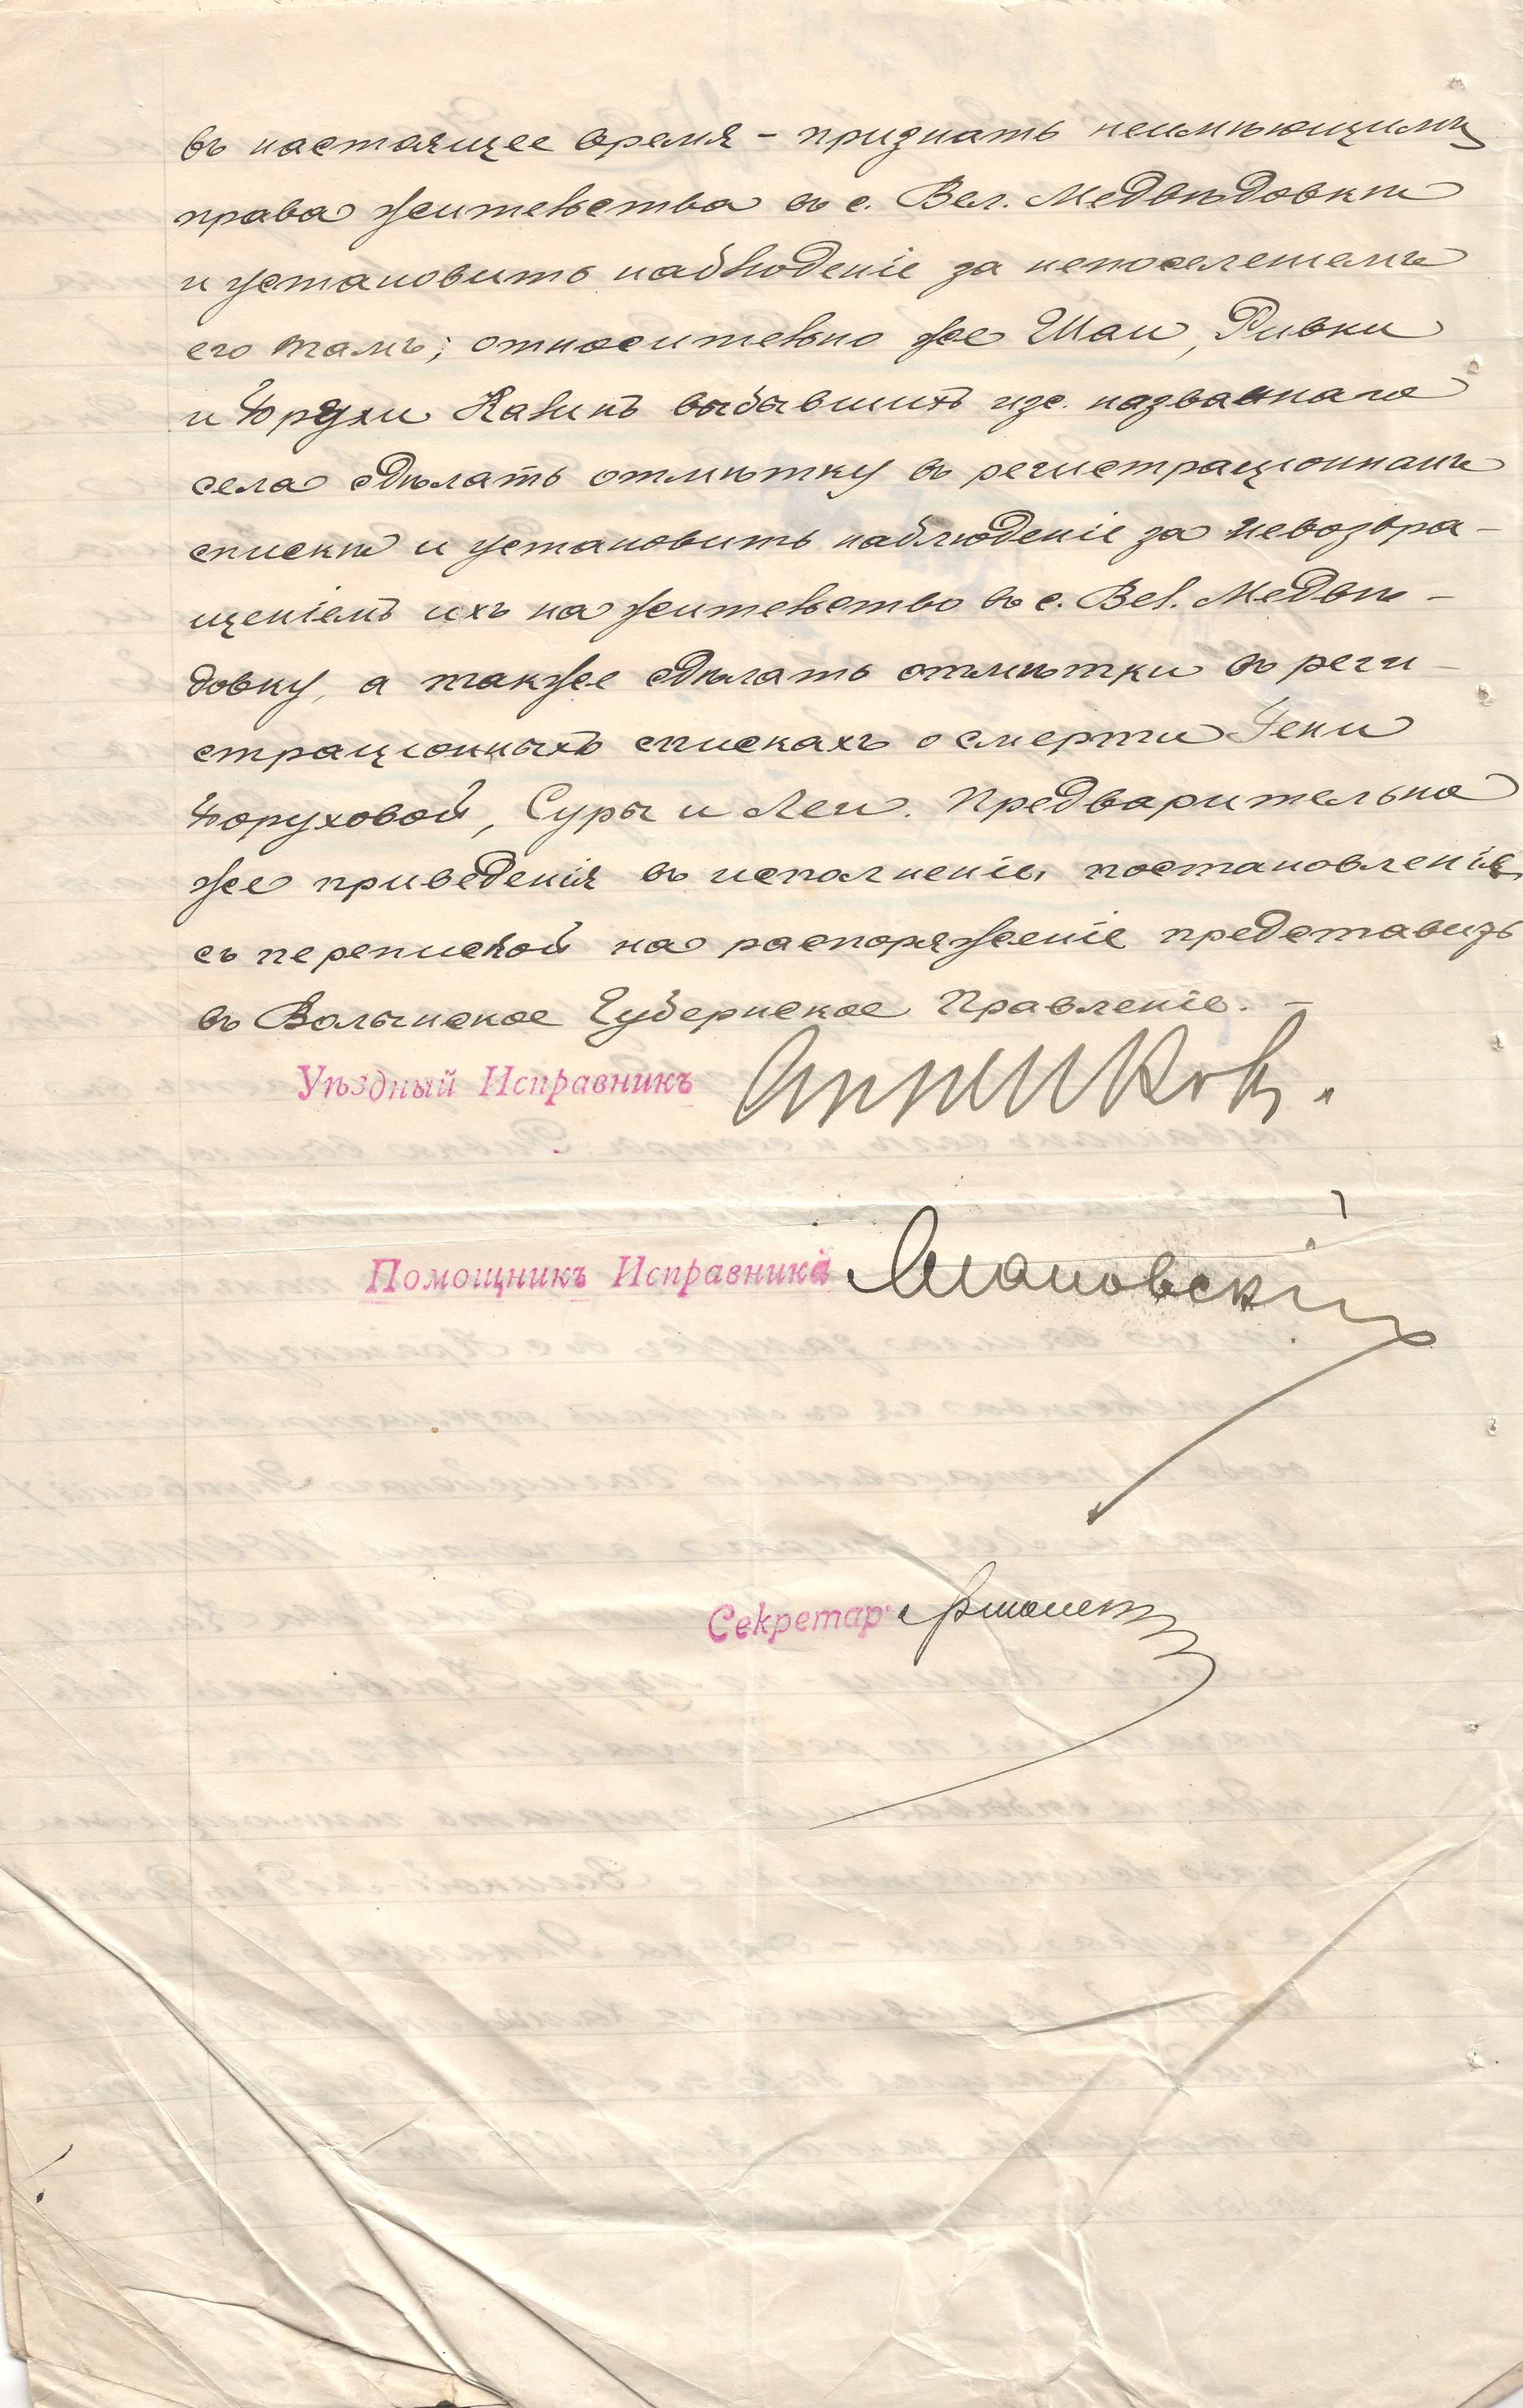 въ настоящее время – признать неимѣющимъ
права жительства въ с. Вел. Медвѣдовкѣ
и установить наблюденіе за непоселеніемъ
его тамъ; относительно же Шаи, Ривки
и Брухи выбывшихъ изъ названнаго
села сдѣлать отмѣтку въ регистраціонномъ
спискѣ и установить наблюденіе за невозвра-
щеніемъ ихъ на жительство въ с. Вел. Медвѣ-
довку, а также сдѣлать отмѣтки въ реги-
страціонныхъ спискахъ о смерти
Боруховой, Суры и Леи. Предварительно
же приведенія въ исполненіе, постановленіе
съ перепиской на распоряженіе представить
въ Волынское Губернское Правленіе. –
Уѣздный Исправникъ
Помощникъ Исправника
Секретар